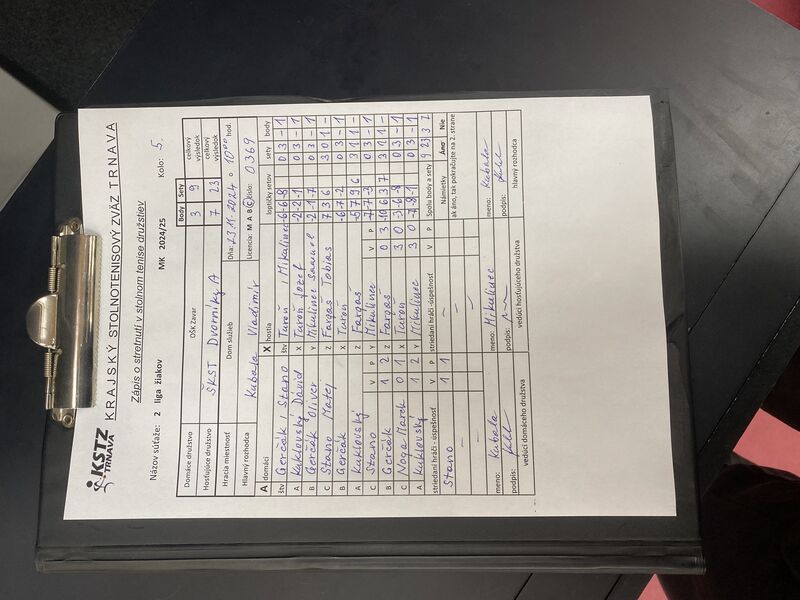 KSTZ
TRNAVA
KRAJSKÝ STOLNOTENISOVÝ ZVÄZ TRNAVA
Zápis o stretnutí v stolnom tenise družstiev
Názov súťaže: 2 liga žiakov MK 2024/25 Kolo: 5.
Body Sety
Domáce družstvo OŠK Zavar 3 9 celkový výsledok
Hosťujúce družstvo ŠKST Dvorníky A 7 23 celkový výsledok
Hracia miestnosť Dom služieb Dňa: 23.11.2024 o 10⁰⁰ hod.
Hlavný rozhodca Kubala Vladimír Licencia: M A B C číslo: 0369
A domáci X hostia loptičky setov sety body
štv Gerčák, Stano štv Turoň, Mikulinec -6 -6 -8 0 3 - 1
A Kuklovský Dávid X Turoň Jozef -2 -2 -1 0 3 - 1
B Gerčák Oliver Y Mikulinec Samuel -2 -1 -7 0 3 - 1
C Stano Matej Z Fargaš Tobias 7 3 6 3 0 1 -
B Gerčák X Turoň -6 -7 -2 0 3 - 1
A Kuklovský Z Fargaš -5 7 9 6 3 1 1 -
C Stano V P Y Mikulinec V P -7 -7 -3 0 3 - 1
B Gerčák 1 2 Z Fargaš 0 3 -10 6 3 7 3 1 1 -
C Noga Marek 0 1 X Turoň 3 0 -3 -6 -8 0 3 - 1
A Kuklovský 1 2 Y Mikulinec 3 0 -7 -8 -1 0 3 - 1
striedaní hráči - úspešnosť V P striedaní hráči - úspešnosť V P Spolu body a sety 9 23 3 7
Stano 1 1 - Námietky Áno Nie
- - ak áno, tak pokračujte na 2. strane
- -
meno: Kubala meno: Mikulinec meno: Kubala
podpis: podpis: podpis:
vedúci domáceho družstva vedúci hosťujúceho družstva hlavný rozhodca